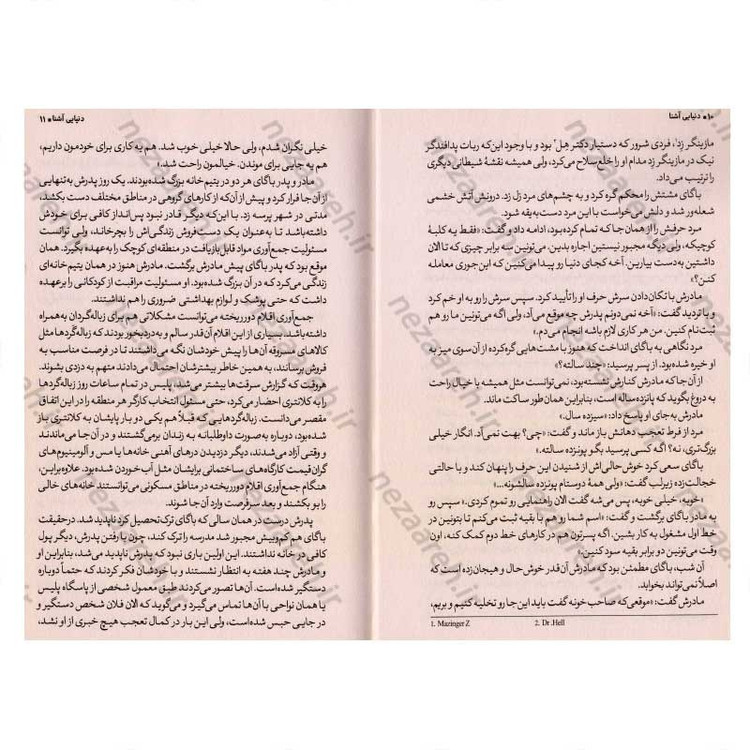 ۱۰ • دنیایی آشنا
مازینگر زد¹، فردی شرور که دستیار دکتر هِل² بود و با وجود این‌که ربات پدافندگر
نیک در مازینگر زد مدام او را خلع‌سلاح می‌کرد، ولی همیشه نقشهٔ شیطانی دیگری
را ترتیب می‌داد.
باگای مشتش را محکم گره کرد و به چشم‌های مرد زل زد. درونش آتش خشمی
شعله‌ور شد و دلش می‌خواست با این مرد دست‌به‌یقه شود.
مرد حرفش را از همان‌جا که تمام کرده‌بود، ادامه داد و گفت: «فقط یه کلبهٔ
کوچیکه، ولی دیگه مجبور نیستین اجاره بدین. می‌تونین سه برابر چیزی که تا الان
داشتین به‌دست بیارین. آخه کجای دنیا رو پیدا می‌کنین که این‌جوری معامله
کنن؟»
مادرش با تکان‌دادن سرش حرف او را تأیید کرد. سپس سرش را رو به او خم کرد
و با تردید گفت: «آخه نمی‌دونم پدرش چه موقع می‌آد، ولی اگه می‌تونین ما رو هم
ثبت‌نام کنین. من هر کاری لازم باشه انجام می‌دم.»
مرد نگاهی به باگای انداخت که هنوز با مشت‌هایی گره‌کرده از آن‌سوی میز به
او خیره شده‌بود. از پسر پرسید: «چند سالته؟»
از آن‌جا که مادرش کنارش نشسته‌بود، نمی‌توانست مثل همیشه با خیال راحت
به دروغ بگوید که پانزده‌ساله است، بنابراین همان‌طور ساکت ماند.
مادرش به‌جای او پاسخ داد: «سیزده سال.»
مرد از فرط تعجب دهانش باز ماند و گفت: «چی؟ بهت نمی‌آد. انگار خیلی
بزرگ‌تری، نه؟ اگه کسی پرسید بگو پونزده سالته.»
باگای سعی کرد خوش‌حالی‌اش از شنیدن این حرف را پنهان کند و با حالتی
خجالت‌زده زیرلب گفت: «ولی همهٔ دوستام پونزده سالشونه...»
«خوبه، خیلی خوبه، پس می‌شه گفت الان راهنمایی رو تموم کردی.» سپس رو
به مادر باگای برگشت و گفت: «اسم شما رو هم با بقیه ثبت می‌کنم تا بتونین در
خط اول مشغول به کار بشین. اگه پسرتون هم در کارهای خط دوم کمک کنه، اون
وقت می‌تونین دو برابر بقیه سود کنین.»
آن شب، باگای مطمئن بود که مادرش آن‌قدر خوش‌حال و هیجان‌زده است که
اصلاً نمی‌تواند بخوابد.
مادرش گفت: «موقعی‌که صاحب خونه گفت باید این‌جا رو تخلیه کنیم و بریم،
1. Mazinger Z
2. Dr .Hell
دنیایی آشنا • ۱۱
خیلی نگران شدم، ولی حالا خیلی خوب شد. هم یه کاری برای خودمون داریم،
هم یه جایی برای موندن. خیالمون راحت شد.»
مادر و پدر باگای هر دو در یتیم‌خانه بزرگ شده‌بودند. یک روز پدرش به‌تنهایی
از آن‌جا فرار کرد و پیش از آن‌که از کارهای گروهی در مناطق مختلف دست بکشد،
مدتی در شهر پرسه زد. با این‌که دیگر قادر نبود پس‌انداز کافی برای خودش
داشته‌باشد تا به‌عنوان یک دست‌فروش زندگی‌اش را بچرخاند، ولی توانست
مسئولیت جمع‌آوری مواد قابل‌بازیافت در منطقه‌ای کوچک را به‌عهده بگیرد. همان
موقع بود که پدر باگای پیش مادرش برگشت. مادرش هنوز در همان یتیم‌خانه‌ای
زندگی می‌کرد که در آن بزرگ شده‌بود. او مسئولیت مراقبت از کودکانی را برعهده
داشت که حتی پوشک و لوازم بهداشتی ضروری را هم نداشتند.
جمع‌آوری اقلام دورریخته می‌توانست مشکلاتی هم برای زباله‌گردان به‌همراه
داشته‌باشد. بسیاری از این اقلام آن‌قدر سالم و به‌دردبخور بودند که زباله‌گردها مثل
کالاهای مسروقه آن‌ها را پیش خودشان نگه می‌داشتند تا در فرصت مناسب به
فروش برسانند، به همین خاطر بیشترشان احتمال می‌دادند متهم به دزدی بشوند.
هروقت که گزارش سرقت‌ها بیشتر می‌شد، پلیس در تمام ساعات روز زباله‌گردها
را به کلانتری احضار می‌کرد، حتی مسئول انتخاب کارگر هر منطقه را در این اتفاق
مقصر می‌دانست. زباله‌گردهایی که قبلاً هم یکی دو بار پایشان به کلانتری باز
شده‌بود، دوباره به‌صورت داوطلبانه به زندان برمی‌گشتند و در آن‌جا می‌ماندند
و وقتی آزاد می‌شدند، دیگر دزدیدن درهای آهنی خانه‌ها یا مس و آلومینیوم‌های
گران‌قیمت کارگاه‌های ساختمانی برایشان مثل آب خوردن شده‌بود. علاوه‌براین،
هنگام جمع‌آوری اقلام دورریخته در مناطق مسکونی می‌توانستند خانه‌های خالی
را بو بکشند و بعد سرفرصت وارد آن‌جا شوند.
پدرش درست در همان سالی که باگای ترک‌تحصیل کرد ناپدید شد. در‌حقیقت
باگای هم کم‌وبیش مجبور شد مدرسه را ترک کند، چون با رفتن پدرش، دیگر پول
کافی در خانه نداشتند. این اولین باری نبود که پدرش ناپدید می‌شد، بنابراین او
و مادرش چند هفته به انتظار نشستند و با خودشان فکر کردند که حتماً دوباره
دستگیر شده‌است. آن‌ها تصور می‌کردند طبق معمول شخصی از پاسگاه پلیس
یا همان نواحی با آن‌ها تماس می‌گیرد و می‌گوید که الان فلان شخص دستگیر و
در جایی حبس شده‌است، ولی این بار در کمال تعجب هیچ خبری از او نشد،
nezaareh.ir